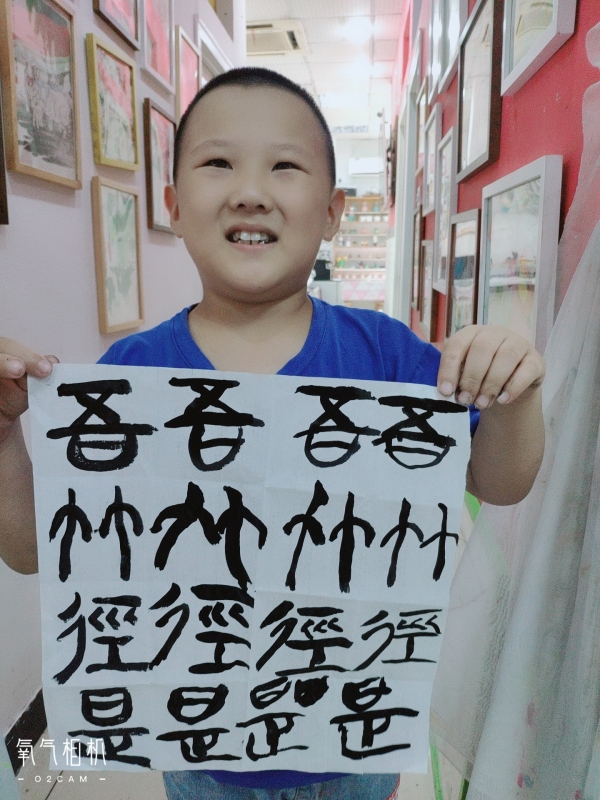 吾 吾 吾 吾
竹 竹 竹 竹
徑 徑 徑 徑
是 是 是 是
氧气相机
O2CAM